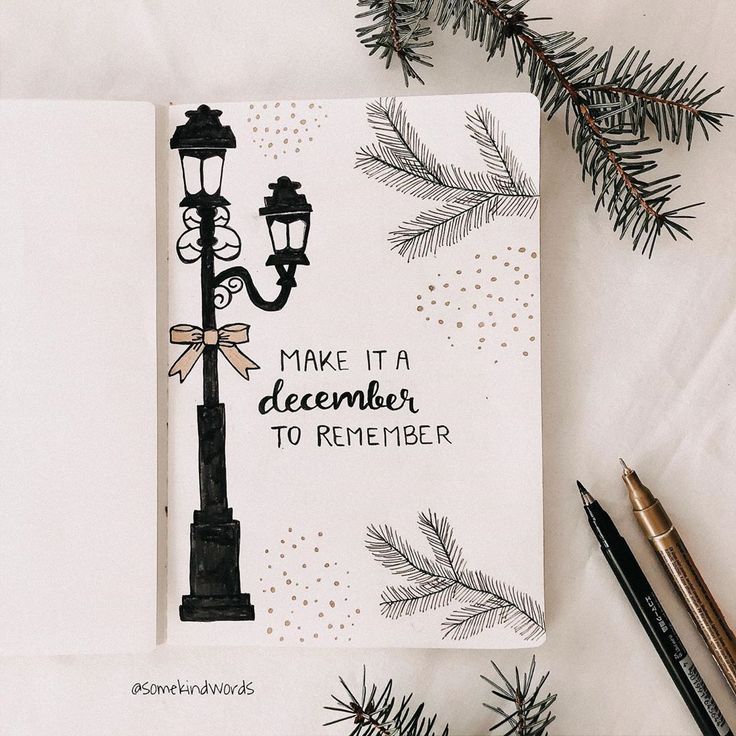 MAKE IT A
december
TO REMEMBER
@somekindwords